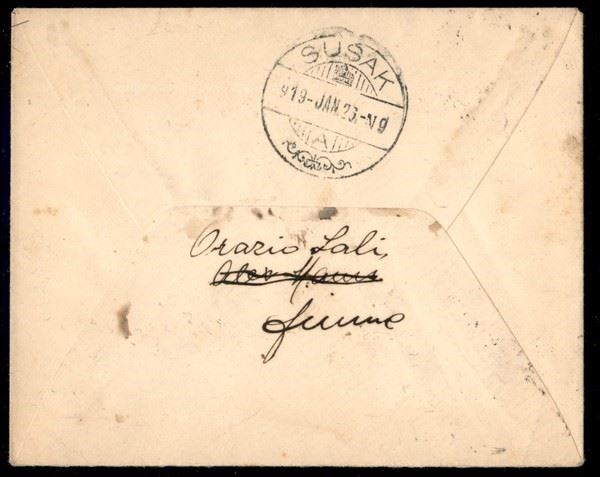 SUŠAK
919-JAN.23.-N9
A
Orazio Lali,
Fiume